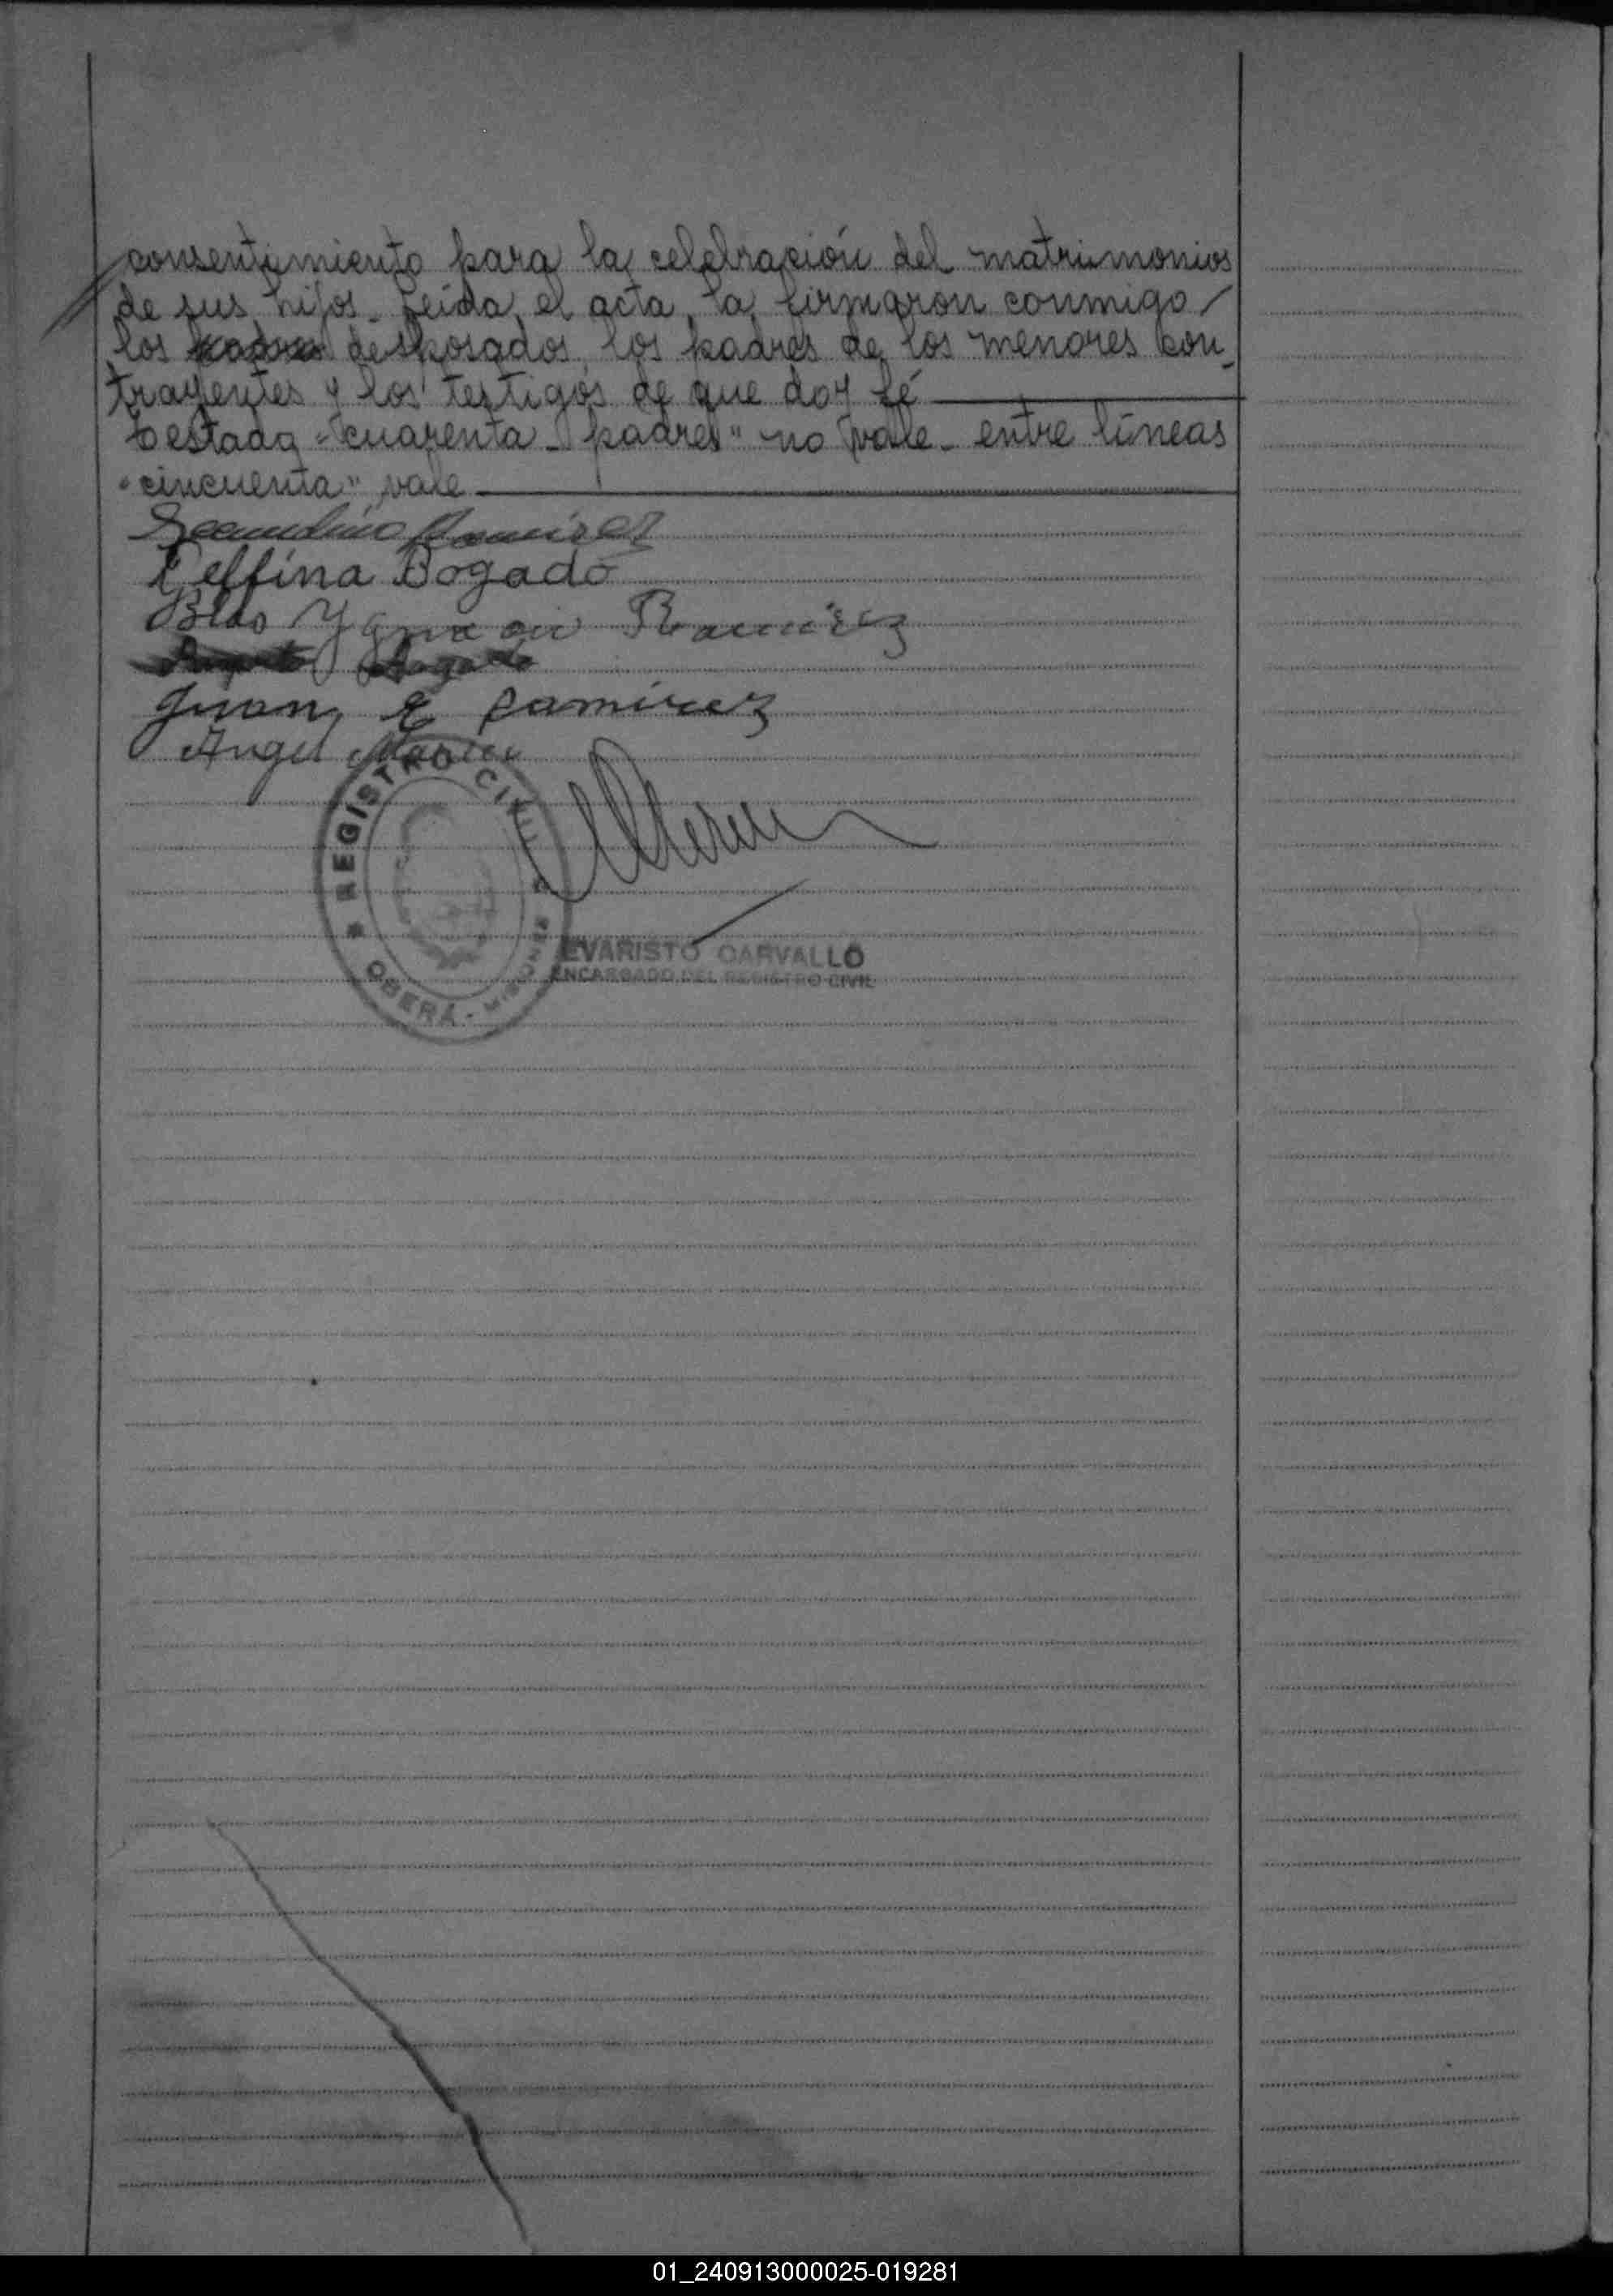 consentimiento para la celebración del matrimonios
de sus hijos. Leida el acta, la firmaron conmigo
los padres desposados, los padres de los menores con-
trayentes y los testigos de que doy fé
Testada "cuarenta - padres" no vale - entre líneas
"cincuenta" vale
Secundino Ramirez
Delfina Bogado
Blas Ygnacio Ramirez
Bogado
Juan E Ramirez
Angel
REGISTRO CIVIL
OBERÁ - MISIONES
EVARISTO CARVALLO
ENCARGADO DEL REGISTRO CIVIL
01_240913000025-019281